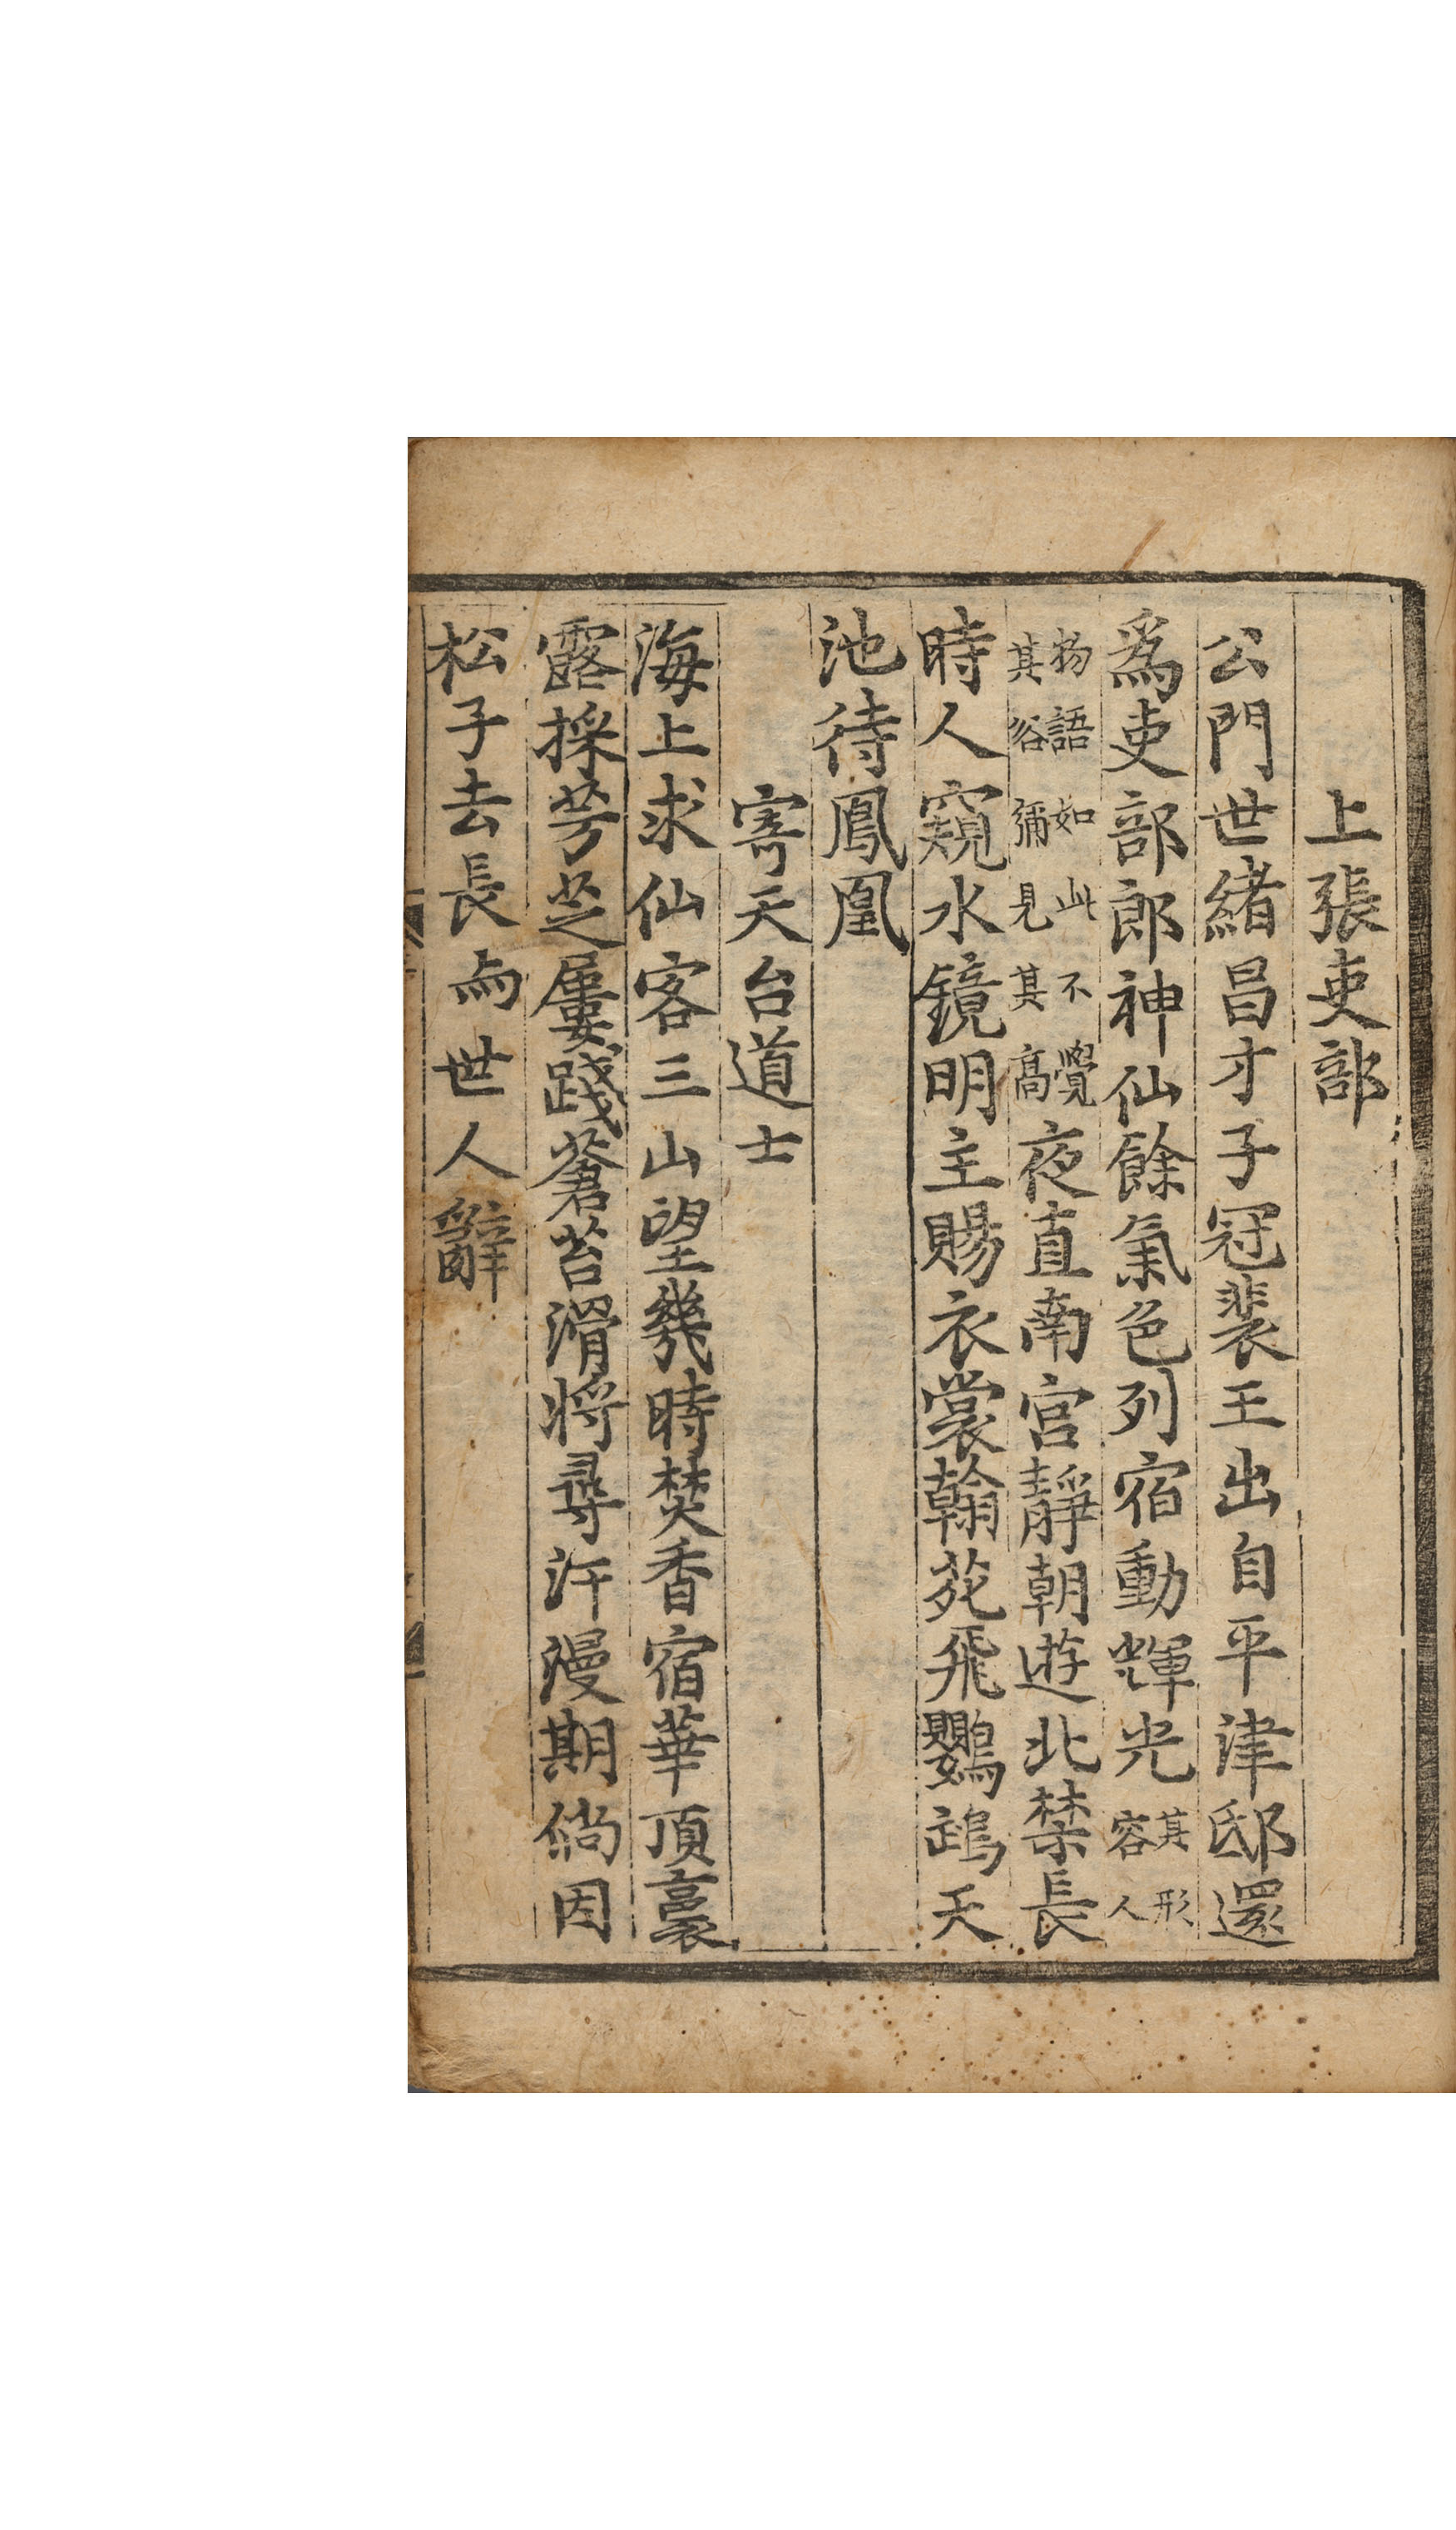 上張吏部
公門世緒昌才子冠裴王出自平津邸還
爲吏部郎神仙餘氣色列宿動輝光其形容人
物語如此不覺其俗彌見其高夜直南宮靜朝遊北禁長
時人窺水鏡明主賜衣裳翰苑飛鸚鵡天
池待鳳凰
寄天台道士
海上求仙客三山望幾時焚香宿華頂裛
露採芳芝屢踐蒼苔滑將尋汗漫期倘因
松子去長与世人辭